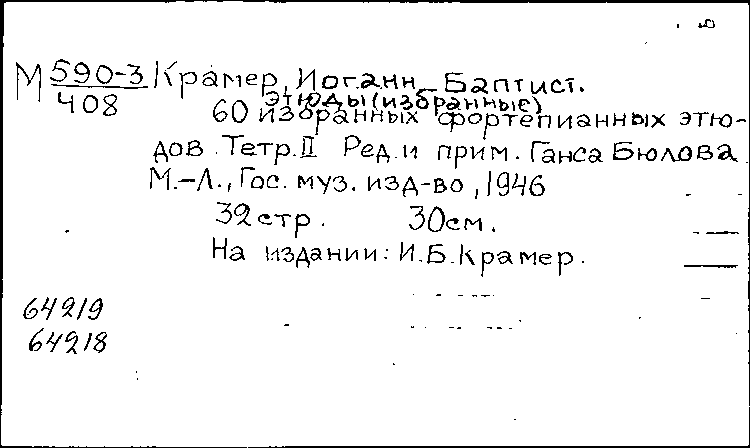 М 590-3 Крамер, Иоганн-Баптист.
408 Этюды (избранные)
60 избранных фортепианных этю-
дов. Тетр. II Ред. и прим. Ганса Бюлова
М.-Л., Гос. муз. изд-во, 1946
32 стр. 30 см.
На издании: И.Б. Крамер.
64219
64218